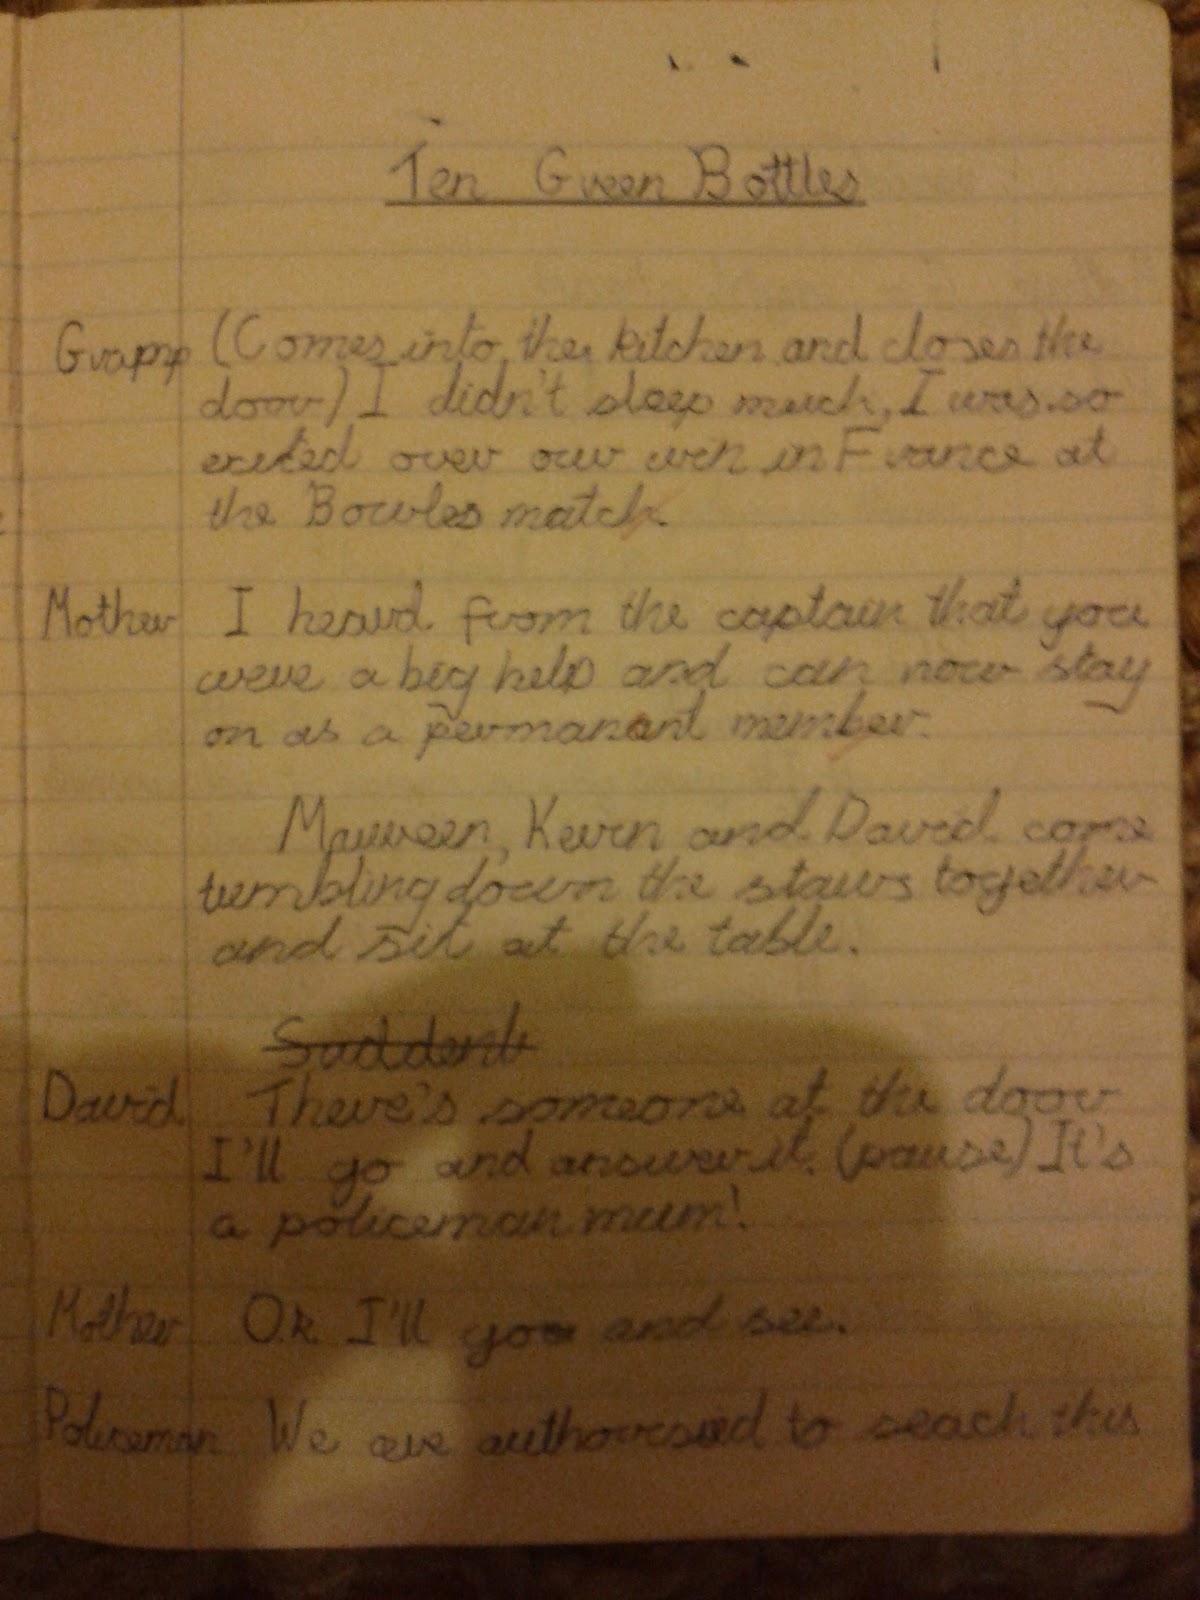 Ten Green Bottles
Gramp (Comes into the kitchen and closes the
door) I didn't sleep much, I was so
exited over our win in France at
the Bowles match.
Mother I heard from the captain that you
were a big help and can now stay
on as a permanant member.
Maureen, Kevin and David come
tumbling down the stairs together
and sit at the table.
Suddenl
David There's someone at the door
I'll go and answer it. (pause) It's
a policeman mum!
Mother O.k. I'll go and see.
Policeman We are authorised to seach this